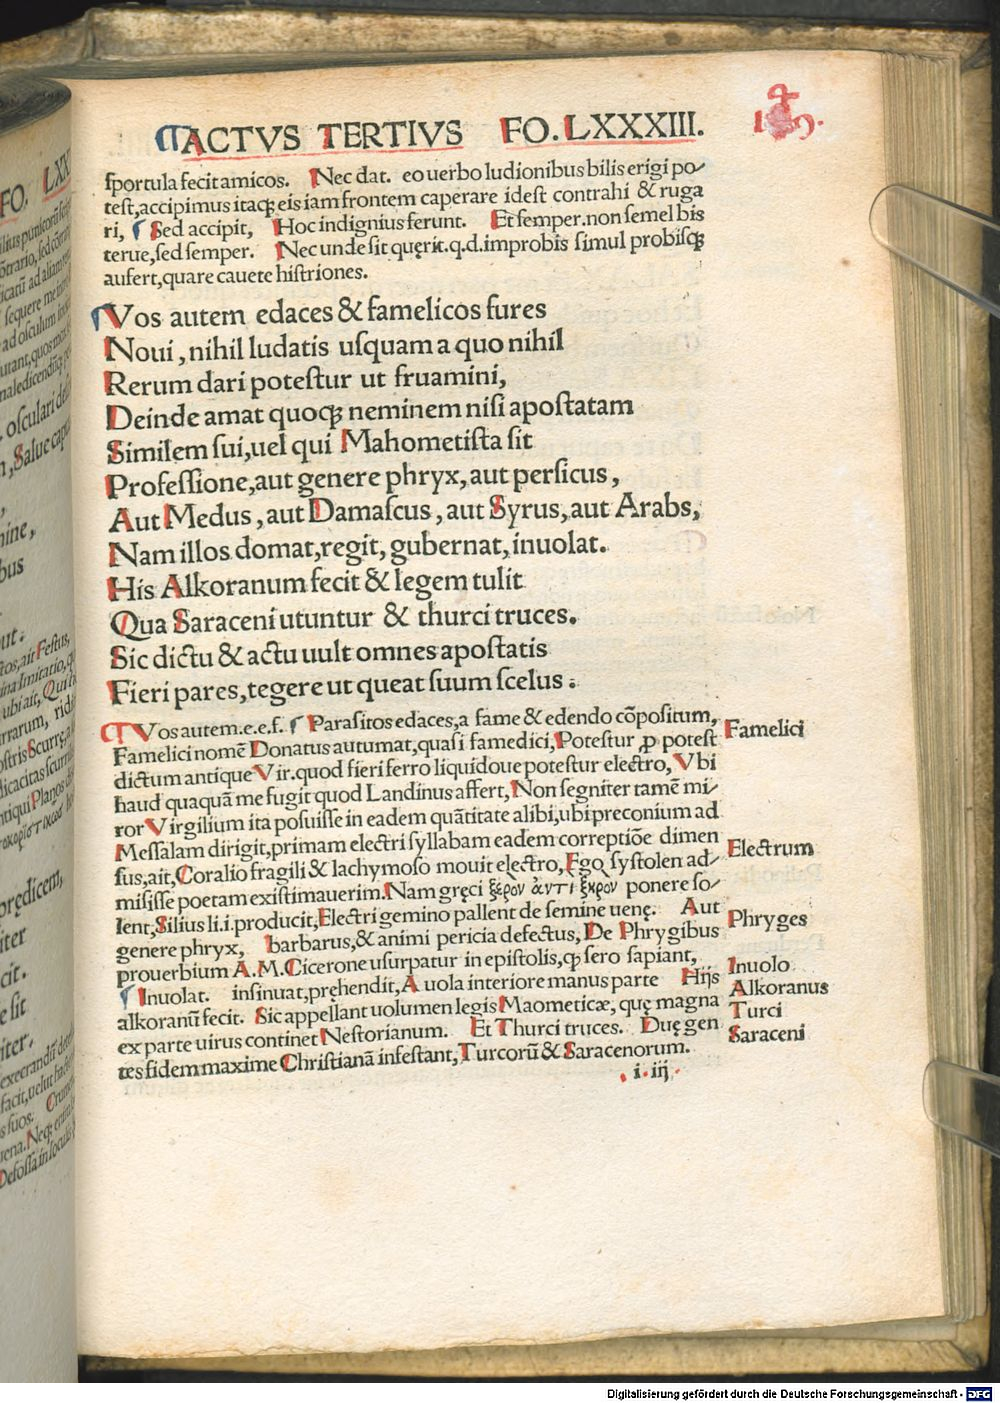 ACTVS TERTIVS FO. LXXXIII.
sportula fecit amicos. Nec dat. eo uerbo ludionibus bilis erigi po⸗
test, accipimus itaqꝫ eis iam frontem caperare idest contrahi & ruga
ri, ¶ Sed accipit, Hoc indignius ferunt. Et semper. non semel bis
terue, sed semper. Nec unde sit quęrit. q.d. improbis simul probisqꝫ
aufert, quare cauete histriones.
Vos autem edaces & famelicos fures
Noui, nihil ludatis usquam a quo nihil
Rerum dari potestur ut fruamini,
Deinde amat quoqꝫ neminem nisi apostatam
Similem sui, uel qui Mahometista sit
Professione, aut genere phryx, aut persicus,
Aut Medus, aut Damascus, aut Syrus, aut Arabs,
Nam illos domat, regit, gubernat, inuolat.
His Alkoranum fecit & legem tulit
Qua Saraceni utuntur & thurci truces.
Sic dictu & actu uult omnes apostatis
Fieri pares, tegere ut queat suum scelus:
¶ Vos autem. e.e.f. ¶ Parasitos edaces, a fame & edendo cōpositum,
Famelici nomē Donatus autumat, quasi famedici, Potestur ꝓ potest
dictum antique Vir. quod fieri ferro liquidoue potestur electro, Vbi
haud quaquā me fugit quod Landinus affert, Non segniter tamē mi⸗
ror Virgilium ita posuisse in eadem quātitate alibi, ubi preconium ad
Messalam dirigit, primam electri syllabam eadem correptiōe dimen
sus, ait, Coralio fragili & lachymoso mouit electro, Ego systolen ad⸗
misisse poetam existimauerim. Nam gręci ξέρον ἀντι ξηρον ponere so⸗
lent, Silius li. i. producit, Electri gemino pallent de semine uenę. Aut
genere phryx, barbarus, & animi pericia defectus, De Phrygibus
prouerbium A.M. Cicerone usurpatur in epistolis, qꝫ sero sapiant,
¶ Inuolat. insinuat, pręhendit, A uola interiore manus parte Hijs
alkoranū fecit. Sic appellant uolumen legis Maometicæ, quę magna
ex parte uirus continet Nestorianum. Et Thurci truces. Duę gen
tes fidem maxime Christianā infestant, Turcorū & Saracenorum.
i. iij
Famelici
Electrum
Phryges
Inuolo
Alkoranus
Turci
Saraceni
Digitalisierung gefördert durch die Deutsche Forschungsgemeinschaft - DFG